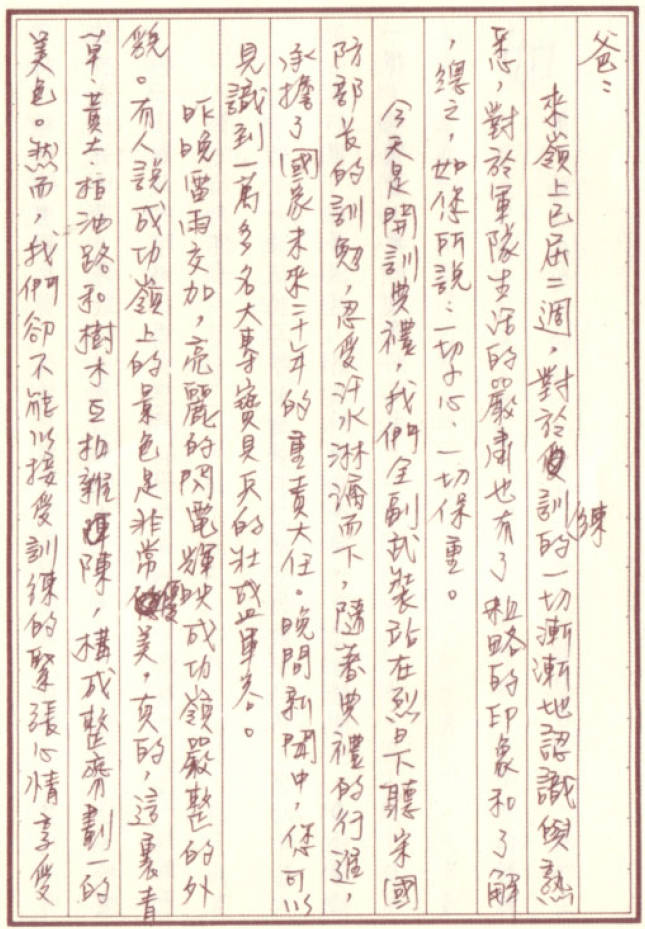 爸：
來嶺上已屆二週，對於訓練的一切漸漸地認識與熟
悉，對於軍隊生活的嚴肅也有了粗略的印象和了解
，總之，如您所說：一切小心、一切保重。
今天是開訓典禮，我們全副武裝站在烈日下聽宋國
防部長的訓勉，忍受汗水淋漓而下，隨著典禮的行進，
承擔了國家未來二十年的重責大任。晚間新聞中，您可以
見識到一萬多名大專寶貝兵的壯盛軍容。
昨晚雷雨交加，亮麗的閃電輝映成功嶺嚴整的外
貌。有人說成功嶺上的景色是非常優美，真的，這裏青
草、黃土、柏油路和樹木互相雜陳，構成整齊劃一的
美色。然而，我們卻不能以接受訓練的緊張心情享受